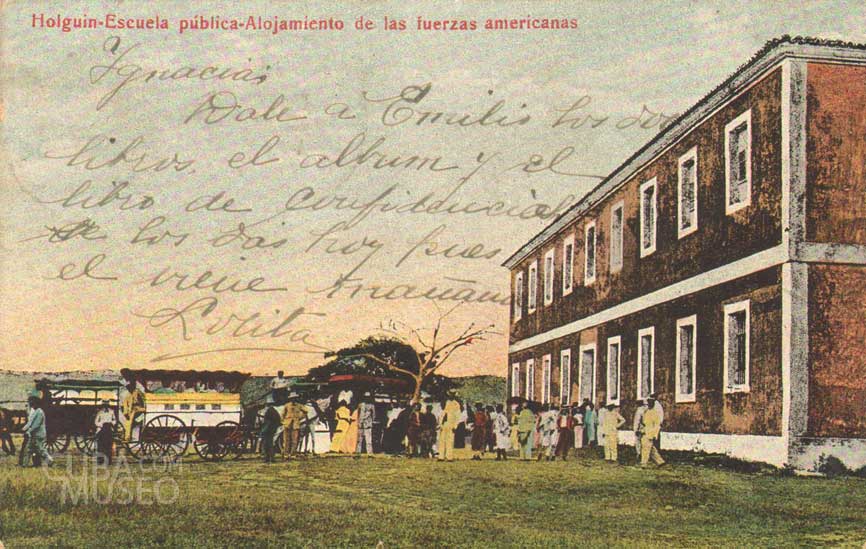 Holguin-Escuela pública-Alojamiento de las fuerzas americanas
Ignacias
Dale á Emilis los dos
libros, el album y el
libro de confidencial
se los das hoy pues
el viene mañana
Lolita
CUBA COM
MUSEO